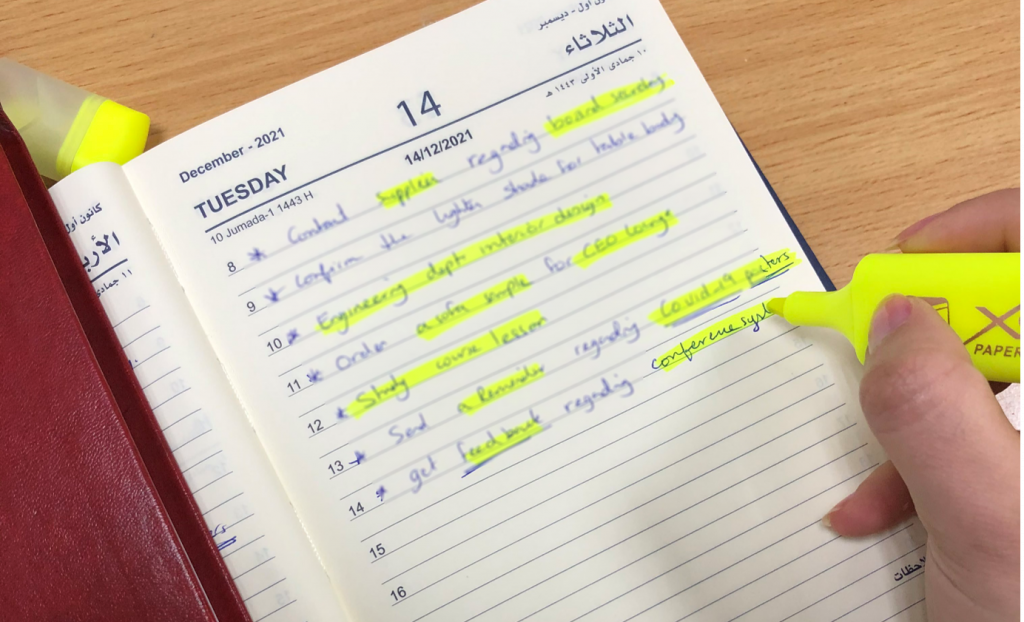 كانون أول - ديسمبر
December - 2021
14
الثلاثاء
TUESDAY
14/12/2021
10 Jumada-1 1443 H
١٠ جمادى الأولى ١٤٤٣ هـ
8 * Contact supplier regarding board
9 * Confirm the lighter shade for table body
10 * Engineering dept interior design
11 * Order a sofa sample for CEO lounge
12 * Study course lesson
13 * Send a Reminder regarding Covid-19 posters
14 * get feedback regarding conference
15
16
PAPER